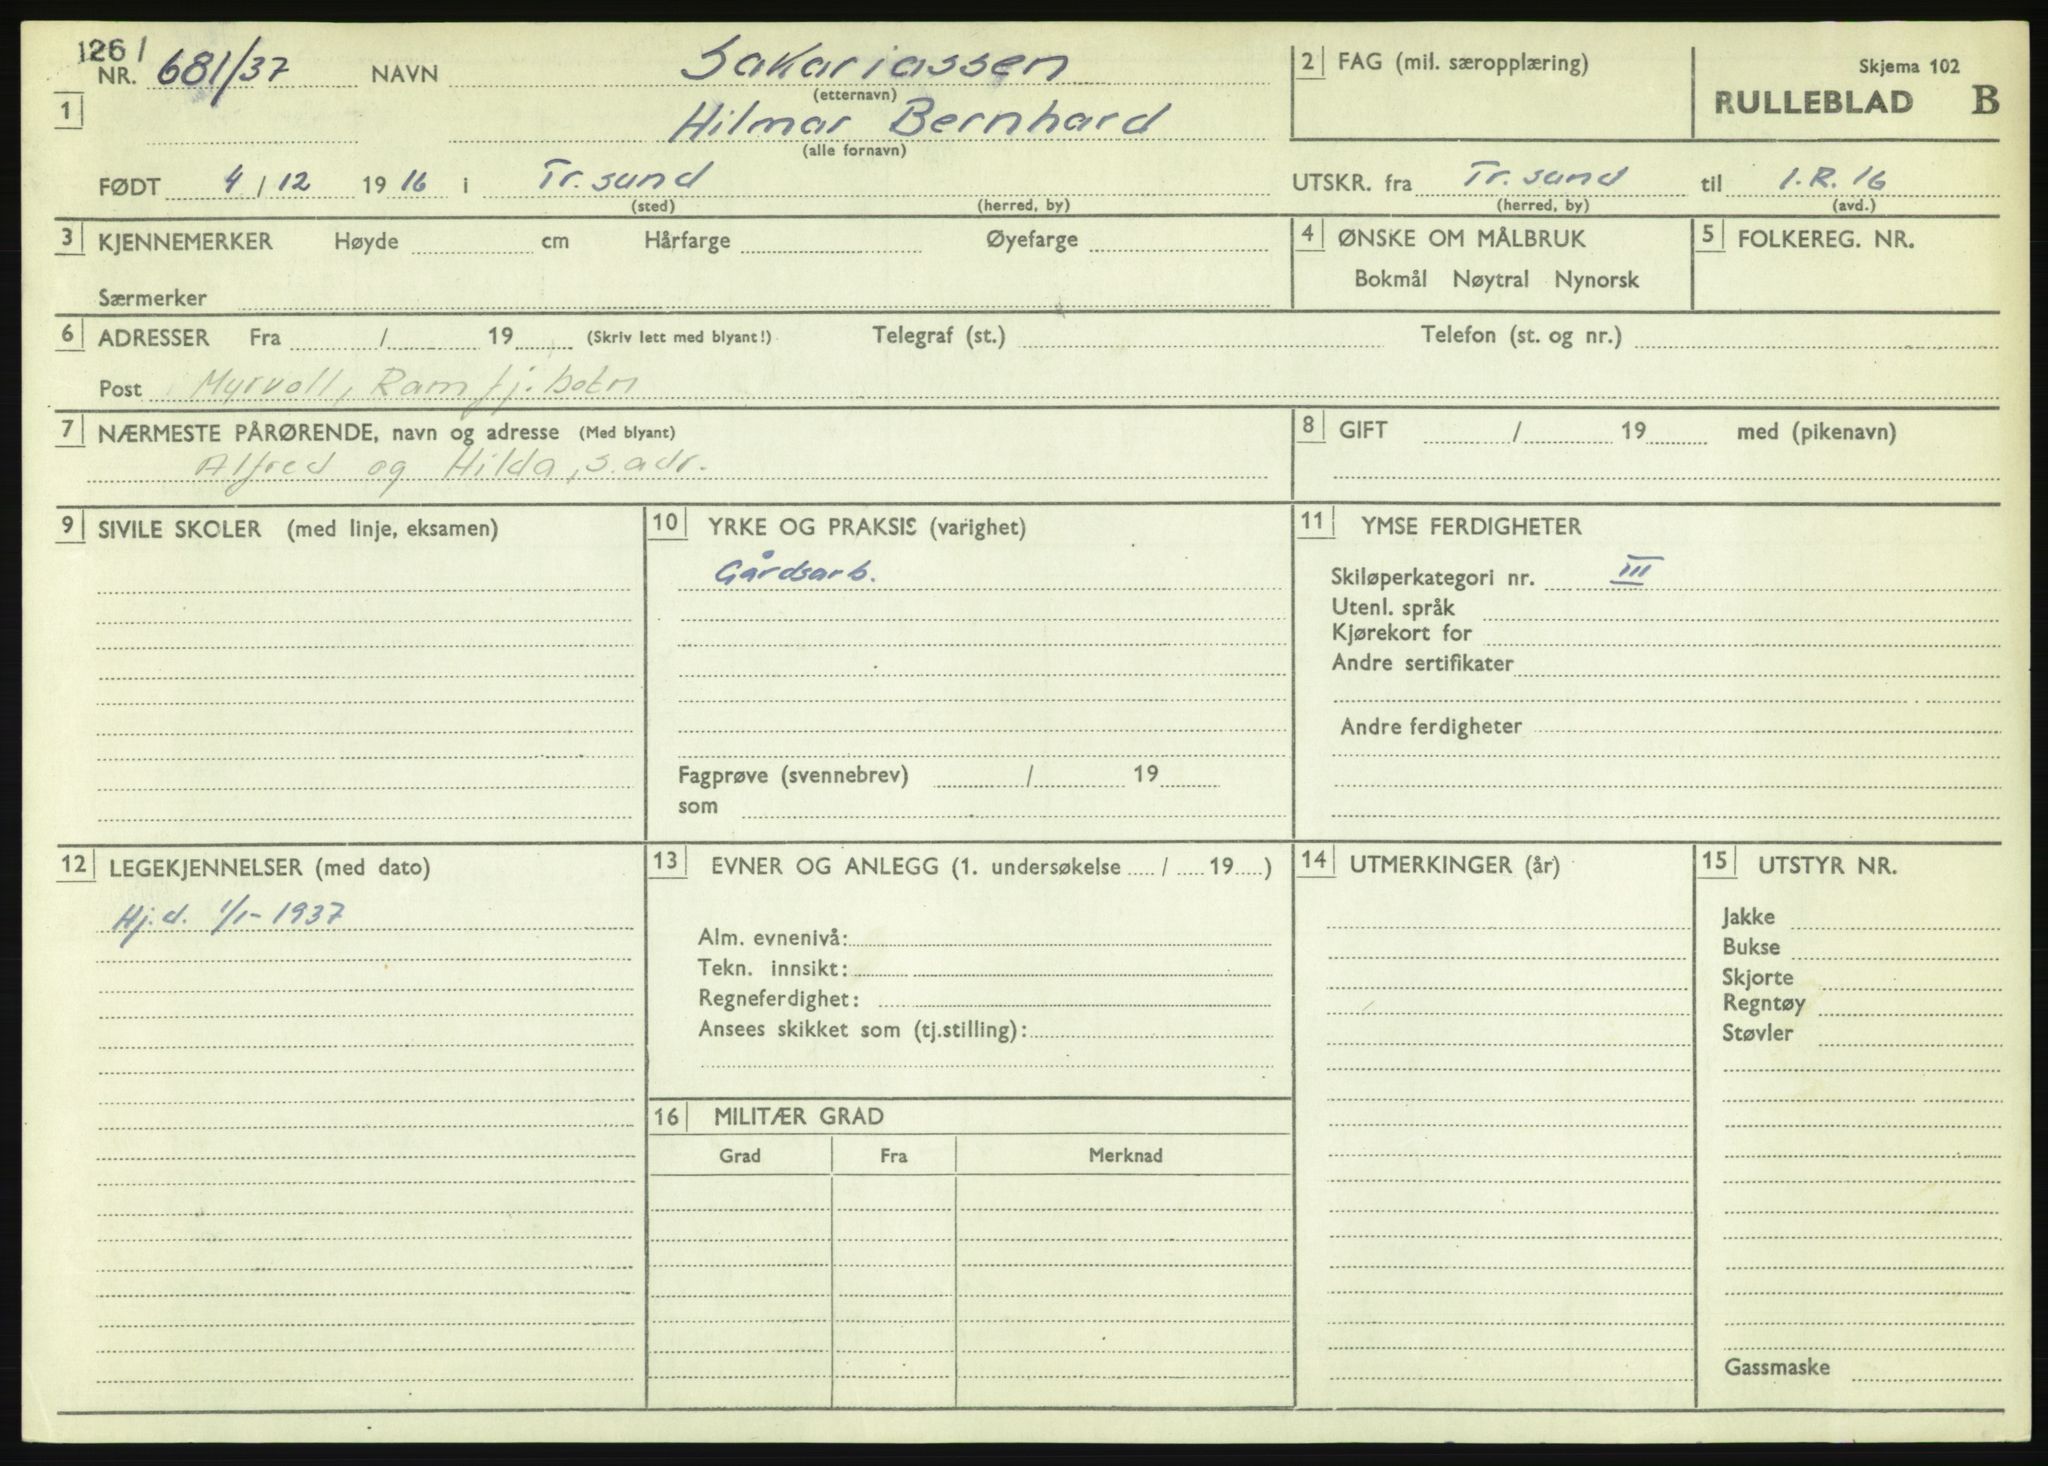 1261
NR. 681/37 NAVN Sakariassen
(etternavn)
2 FAG (mil. særopplæring)
Skjema 102
RULLEBLAD B
1
Hilmar Bernhard
(alle fornavn)
FØDT 4/12 1916 i Tr.sund
(sted) (herred, by)
UTSKR. fra Tr.sund til I.R. 16
(herred, by) (avd.)
3 KJENNEMERKER Høyde cm Hårfarge Øyefarge
Særmerker
4 ØNSKE OM MÅLBRUK
Bokmål Nøytral Nynorsk
5 FOLKEREG. NR.
6 ADRESSER Fra / 19 (Skriv lett med blyant!) Telegraf (st.) Telefon (st. og nr.)
Post Myrvoll, Ramfj.botn
7 NÆRMESTE PÅRØRENDE, navn og adresse (Med blyant)
Alfred og Hilda, s.adr.
8 GIFT / 19 med (pikenavn)
9 SIVILE SKOLER (med linje, eksamen)
10 YRKE OG PRAKSIS (varighet)
Gårdsarb.
Fagprøve (svennebrev) / 19
som
11 YMSE FERDIGHETER
Skiløperkategori nr. III
Utenl. språk
Kjørekort for
Andre sertifikater
Andre ferdigheter
12 LEGEKJENNELSER (med dato)
Hj.d. 1/1-1937
13 EVNER OG ANLEGG (1. undersøkelse / 19 )
Alm. evnenivå:
Tekn. innsikt:
Regneferdighet:
Ansees skikket som (tj.stilling):
14 UTMERKINGER (år)
15 UTSTYR NR.
Jakke
Bukse
Skjorte
Regntøy
Støvler
Gassmaske
16 MILITÆR GRAD
Grad Fra Merknad